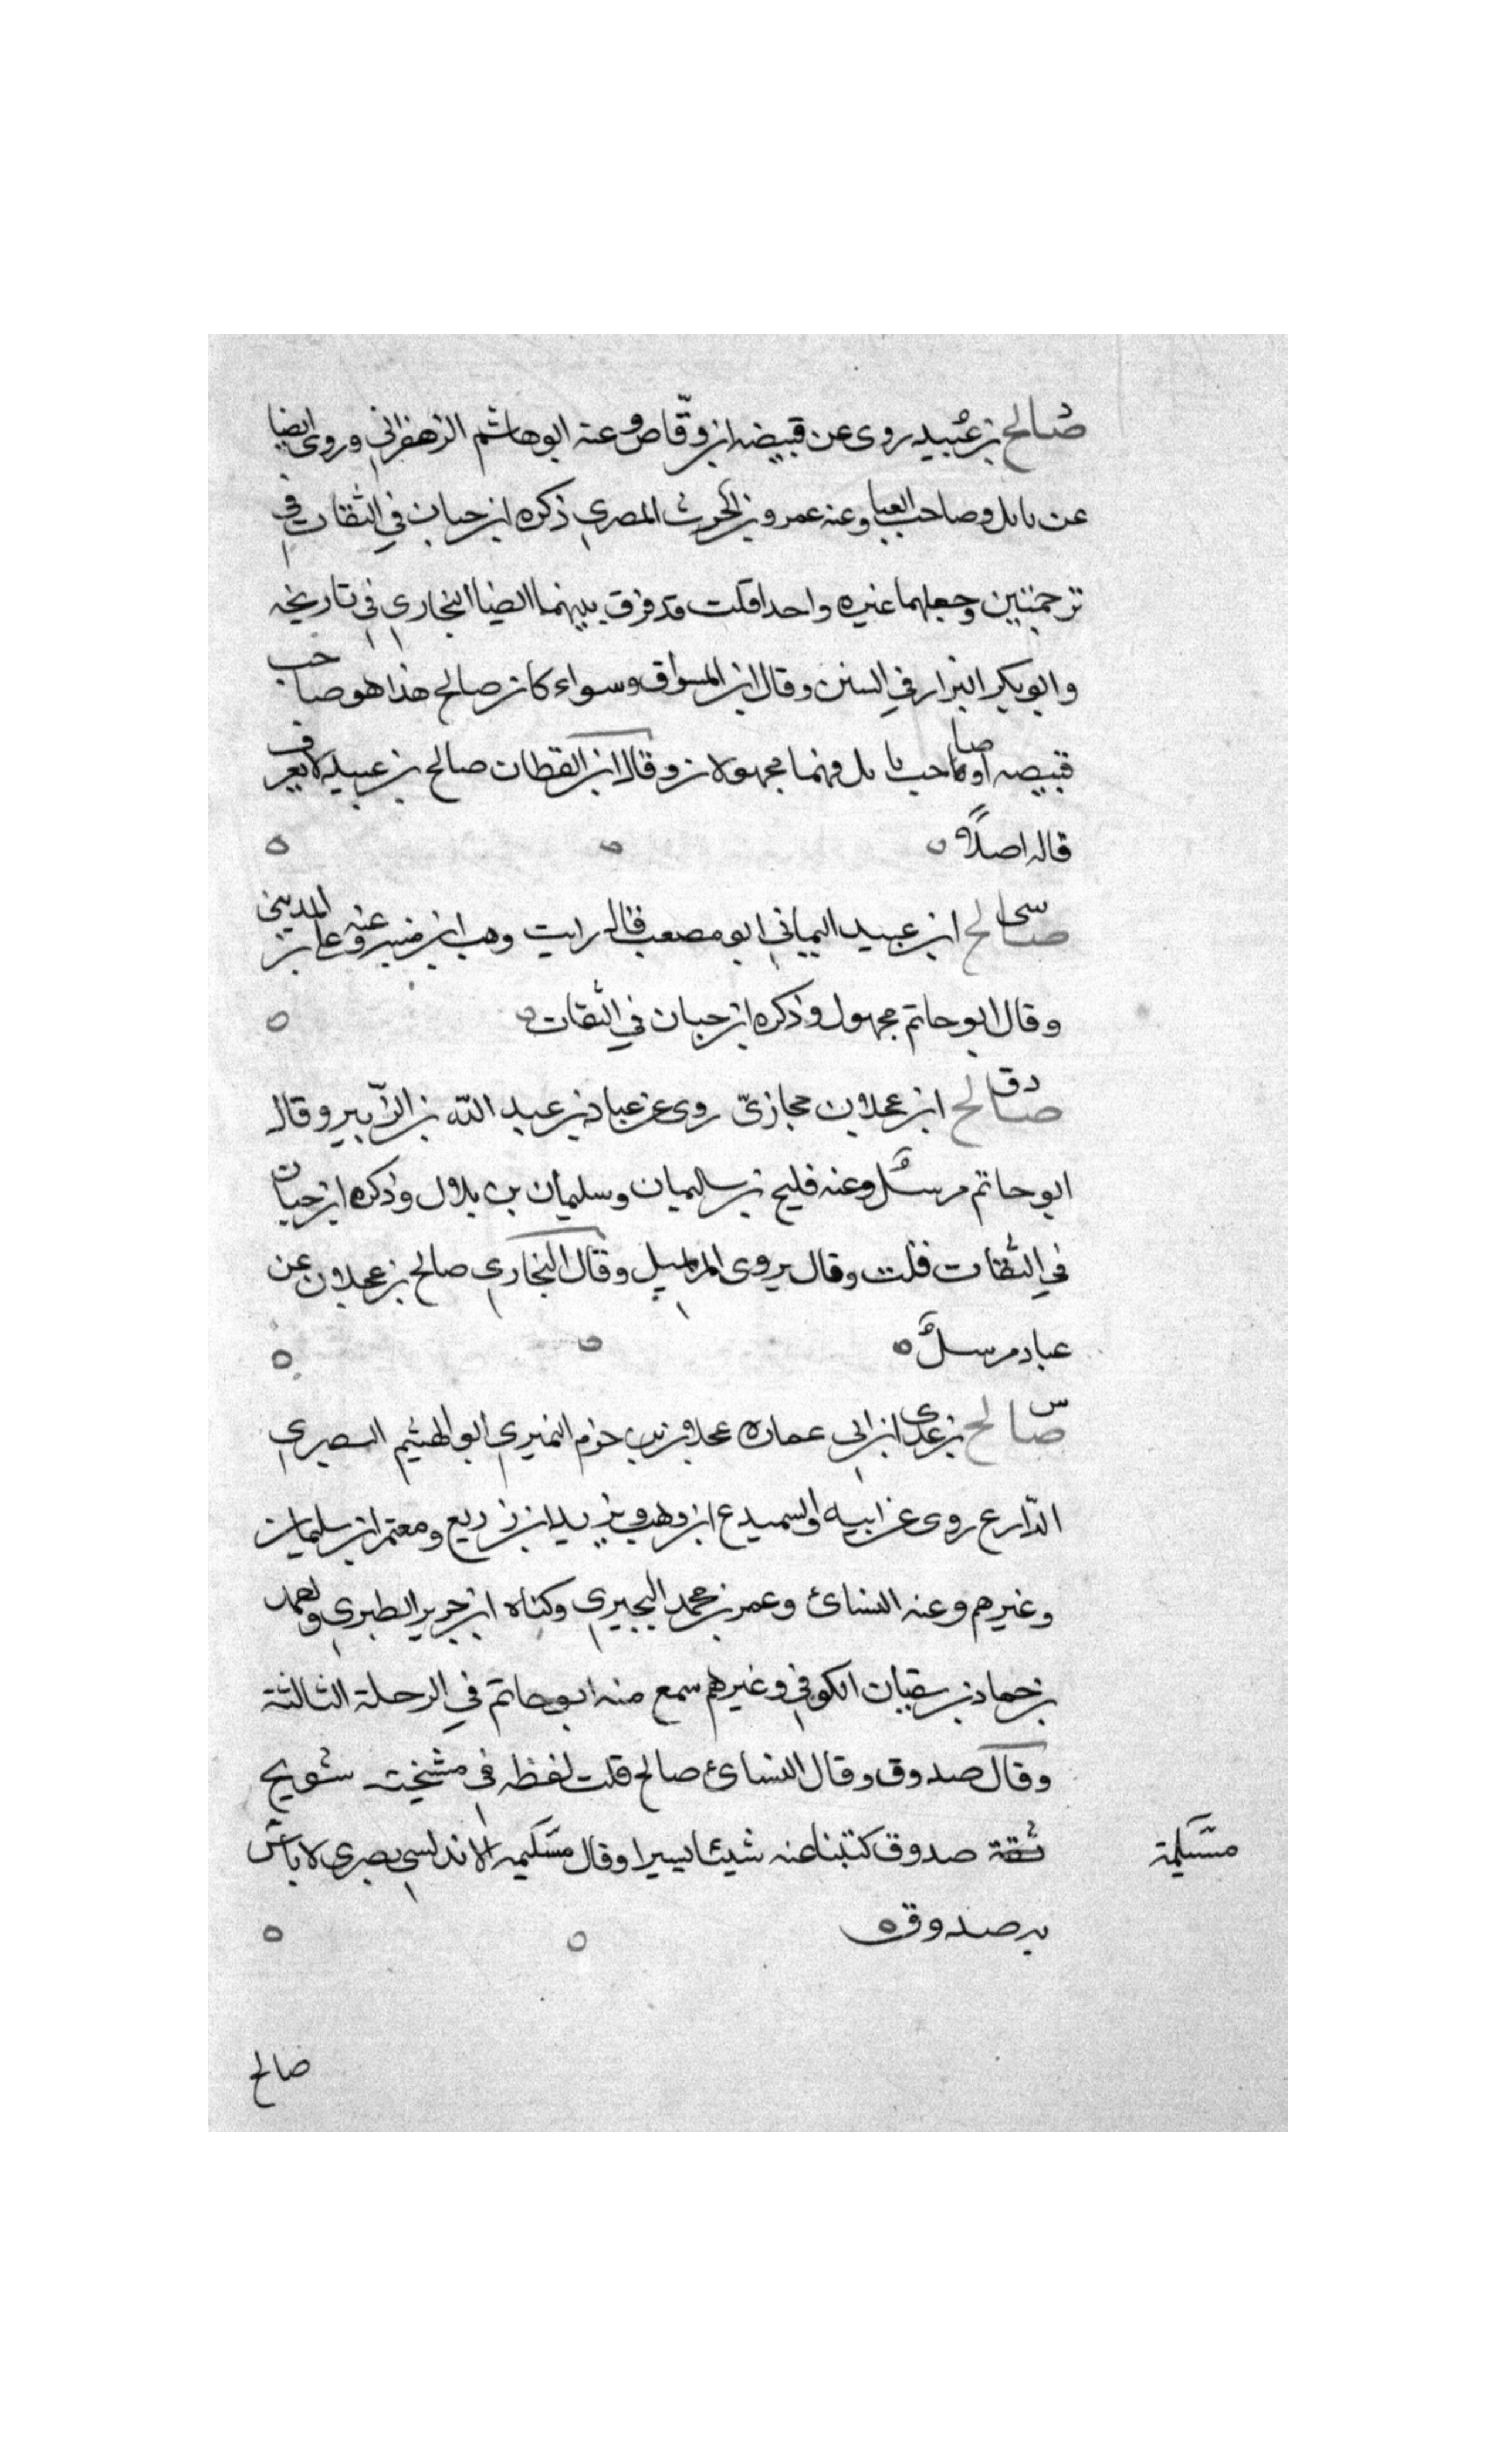 صالح بن عبيد روى عن قبيصه ابن وقّاص وعنه ابو هاشم الزعفراني وروى ايضا
عن نابل وصاحب العبا وعنه عمرو بن الحرث المصري ذكره ابن حبان في الثقات في
ترجمتين وجعلهما غيره واحدا قلت قد فرق بينهما ايضا البخاري في تاريخه
وابو بكر البزار في السنن وقال ابن المواق وسواء كان صالح هذا هو صاحب
قبيصه او صاحب نابل فهما مجهولان وقال ابن القطان صالح بن عبيد لا يعرف
قاله اصلًا
صالح ابن عبيد اليماني ابو مصعب قال رايت وهب ابن منبه وعنه علي بن المديني
وقال ابو حاتم مجهول وذكره ابن حبان في الثقات
صالح ابن عجلان حجازيّ روى عن عباد بن عبد الله بن الزّبير وقال
ابو حاتم مرسل وعنه فليح بن سليمان وسليمان بن بلال وذكره ابن حبان
في الثقات قلت وقال يروى المراسيل وقال البخاري صالح بن عجلان عن
عباد مرسل
س صالح بن عدى ابن ابى عماره عجلان بن حزم النميري ابو الهيثم البصري
الذّارع روى عن ابيه والسميدع ابن وهب ويزيد ابن زريع ومعتمر ابن سليمان
وغيرهم وعنه النسائ وعمر بن محمد البجيري وكناه ابن جرير الطبري ومحمد
بن حماد بن سفيان الكوفي وغيرهم سمع منه ابو حاتم في الرحلة الثالثة
وقال صدوق وقال النسائ صالح قلت لفظه في مشيخته شويح
ثقة صدوق كتبنا عنه شيئا يسيرا وقال مسلمه الاندلسي بصري لا باس
مسلمة
به صدوق
صالح